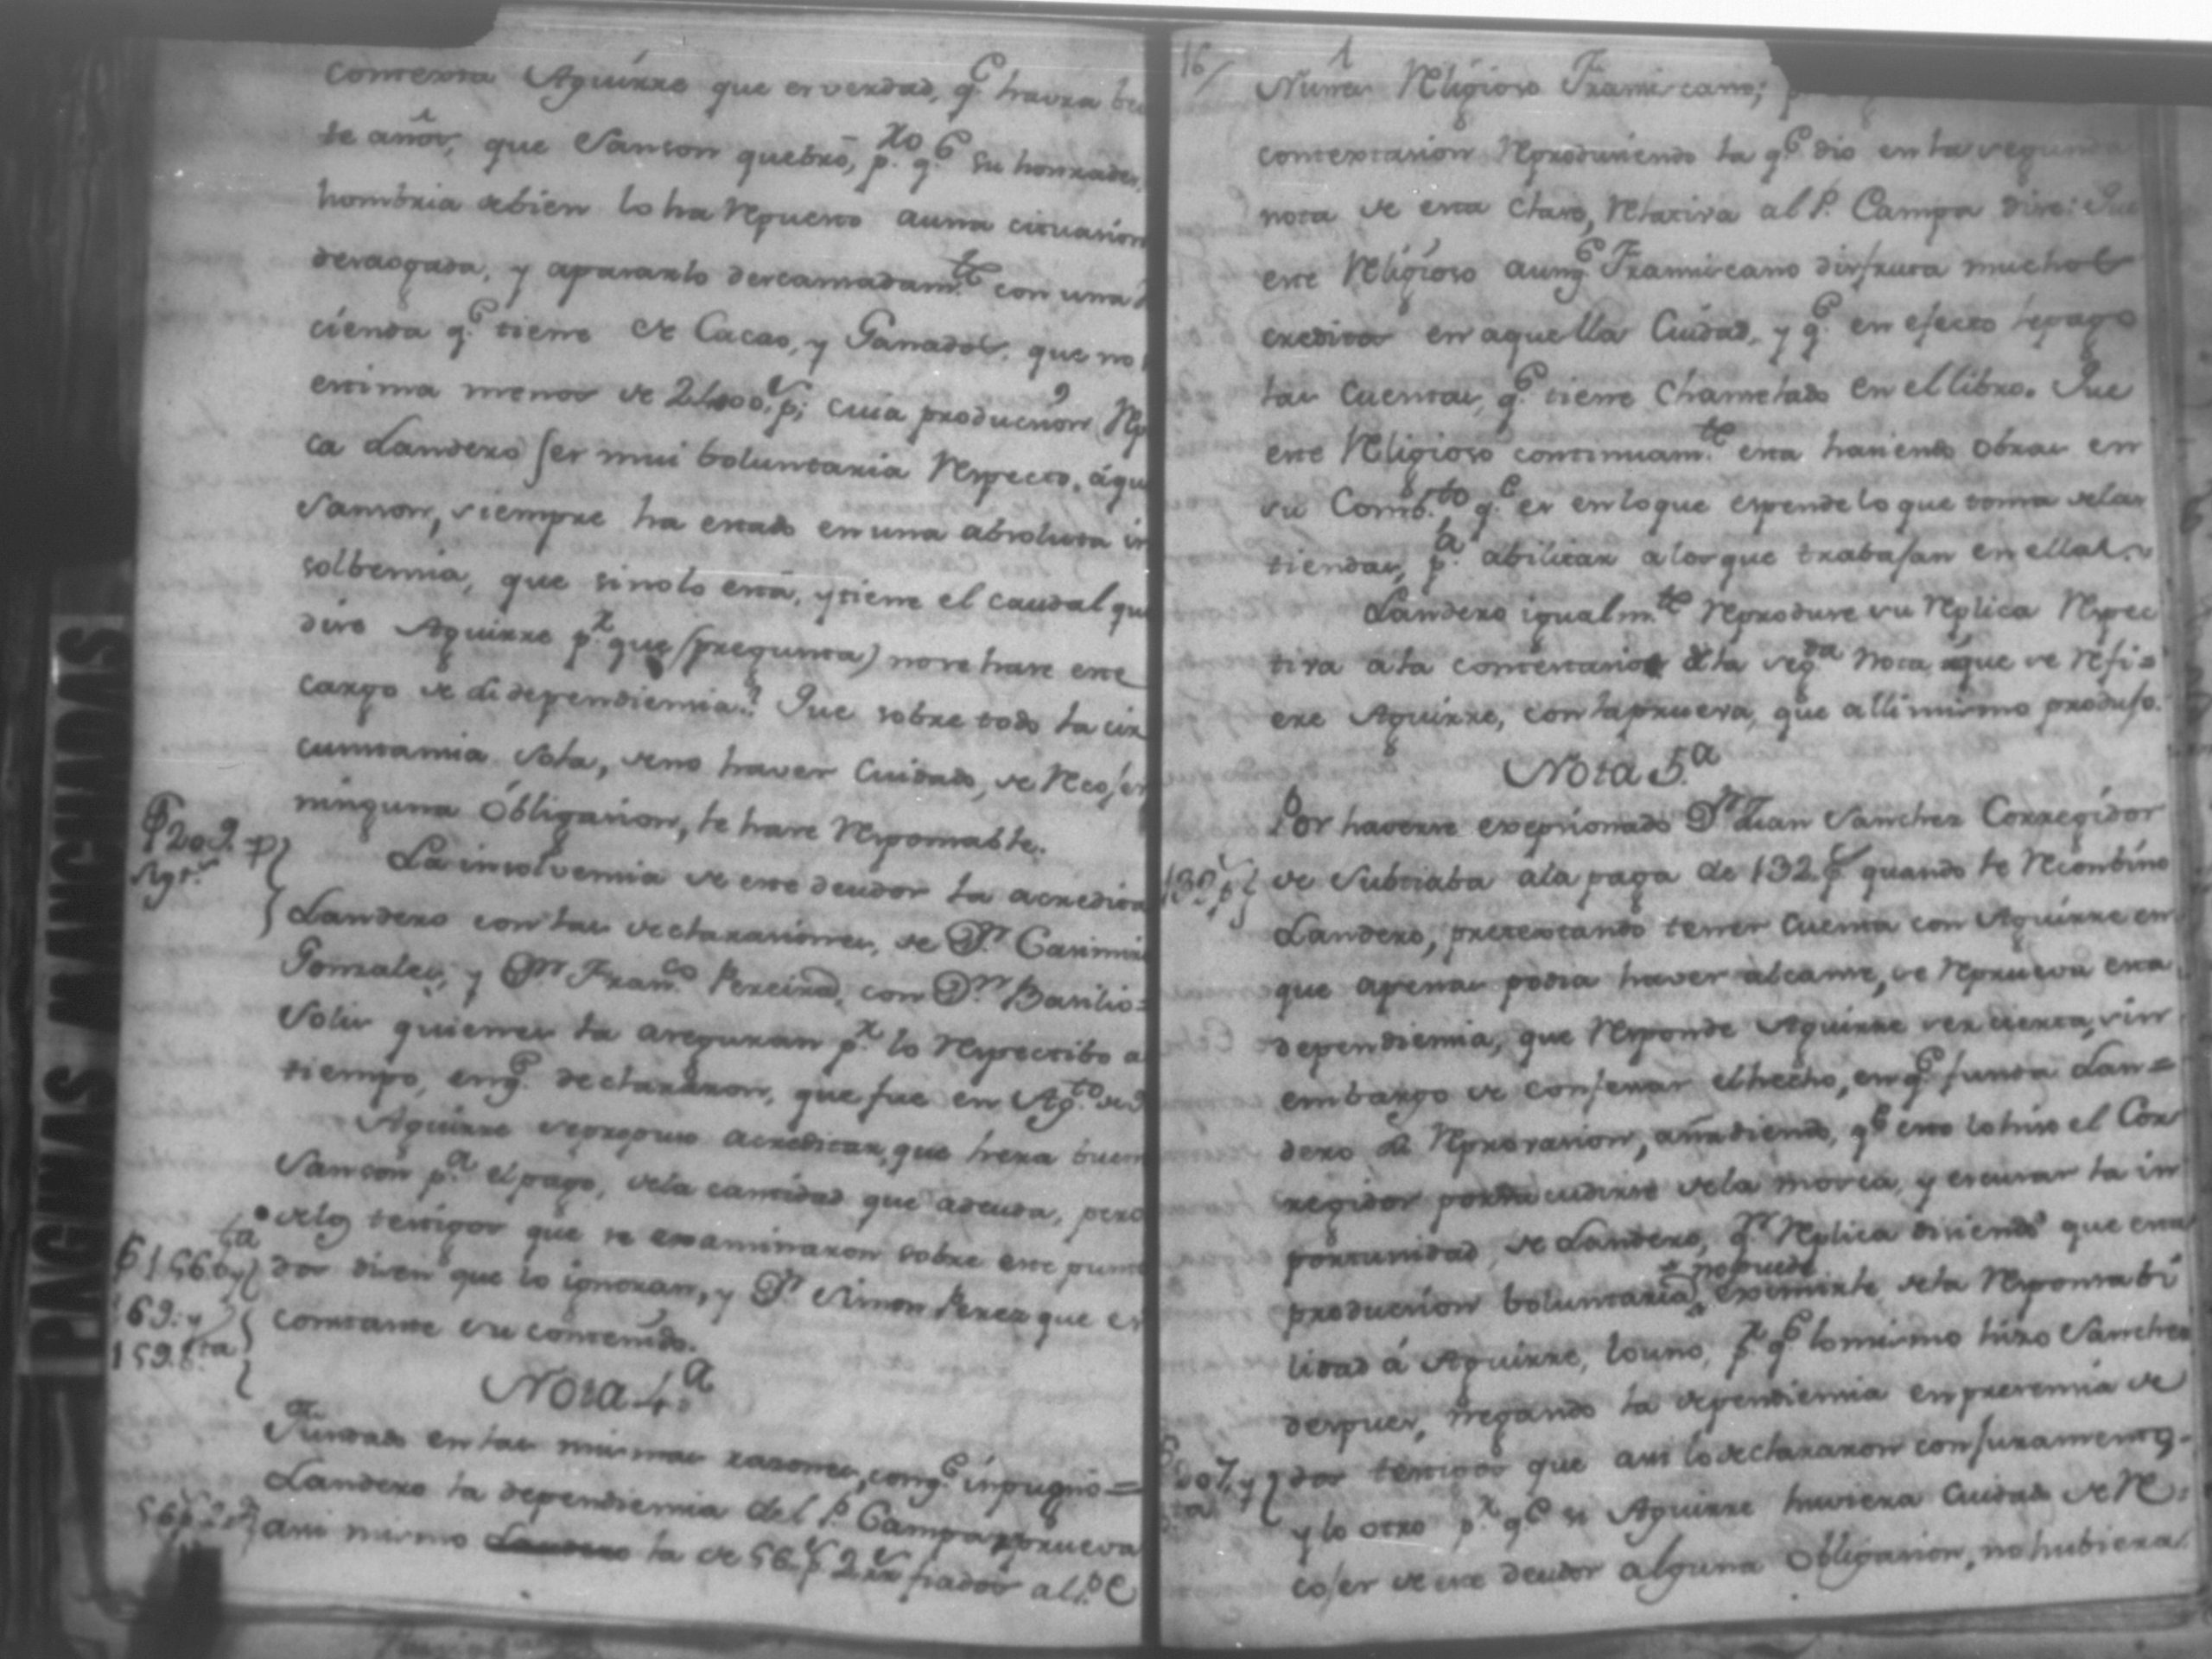 Contexta Aguirre que es verdad, q.e havra
te años, que Sanson quebró, p.ro q.e su honrades,
hombria debien lo ha Repuesto auna cituasion
desaogada, y apararlo descansadam.te con una
cienda q.e tiene de Cacao, y Ganados, que no
estima menos de 2400. p.s cuia producsion Rep
ca Landero ser mui boluntaria Respecto, áque
Sanson, siempre ha estado en una absoluta in
solbensia, que sinolo está, ytiene el caudal que
dise Aguirre p.r que (pregunta) nose hase este
cargo de di dependiensia? Que sobre todo la cir
cunstansia sola, deno haver Cuidado, de Recojer
ninguna Obligasion, le hase Responsable.
La insolvensia de este deudor la acredita
Landero con las declarasiones, de D.n Casimir
Gonzales, y D.n Fran.co Pereira, con D.n Basilio=
Solis quienes la aseguran p.r lo Respectibo a
tiempo, enq.e declararon, que fue en Ag.to de
Aguirre sepropuso acreditar, que hera buen
Sanson p.a el pago, dela cantidad que adeuda, pero
delos testigos que se examinaron sobre este punto
dos disen que lo ignoran, y D.n Simon Perez que es
constante su contenido.
Nota 4.a
Fundado en las mismas rasones, conq.e inpugnó=
Landero la dependiensia del P. Campa Reprueva
asi mismo Landero la de 56 p.s 2 rr.s fiados al P.e
209
Ag.to
156 b.ta y
69. y
159. b.ta
56 p.s 2 r.s
16/
1
Nuñes Religioso Fransiscano;
contextasion Reprodusiendo la q.e dio en la segunda
nota de esta Clase, Relativa al P. Campa dise: Que
este Religioso aunq.e Fransiscano disfruta mucho
credito en aquella Ciudad, y q.e en efecto le pago
las Cuentas, q.e tiene Chanselado en el libro. Que
este Religioso continuam.te esta hasiendo obras en
su Comb.to q.e es enloque espende lo que toma delas
tiendas, p.a abilitar alos que trabajan en ellas.
Landero igualm.te Reproduse su Replica Respec
tiva a la contestasion dela seg.da Nota áque se Refi=
ere Aguirre, con laprueva, que alli mismo produjo.
Nota 5.a
Por haverse exepsionado D.n Juan Sanches Corregidor
de Subtiaba ala paga de 132 p.s quando le Reconbino
Landero, pretextando tener Cuenta con Aguirre en
que apenas podia haver alcanse, se Reprueva esta
dependiensia, que Responde Aguirre ser cierta, sin
embargo de confesar elhecho, enq.e funda Lan=
dero la Reprovasion, añadiendo, q.e esto lohiso el Cor
regidor para cudirse dela morea, y escusar la in
portunidad, de Landero, q.n Replica disiendo que esta
produccion boluntaria no puede eximirle dela Responsabi
lidad á Aguirre, louno, p.r q.e lomismo hizo Sanches
despues, negando la dependiensia enpresensia de
dos testigos que asi lo declararon conjuramento.
y lo otro p.r q.e si Aguirre huviera Cuidado de Re=
cojer de este deudor alguna Obligasion, nohubiera
132 p.s
207. y
PAGINAS MANCHADAS